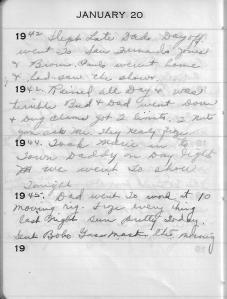 JANUARY 20
1942 Slept Late Dads Day off
went to San Fernando Jones
& Browns. Pauls went home
& had saw the show.
1943. Rained all Day & was
terrible Bud & Dad went Down
& Dug Clams got 2 limits. I Not
you ask me. They nearly froze
1944. Took Melvie in to
Town Daddy on Day Night
we went to show
Tonight
1945. Dad went To work at 10
moving rig. Froze every thing
last Night Sun pretty Today.
Sent Bobo Gas Mask this morning
19